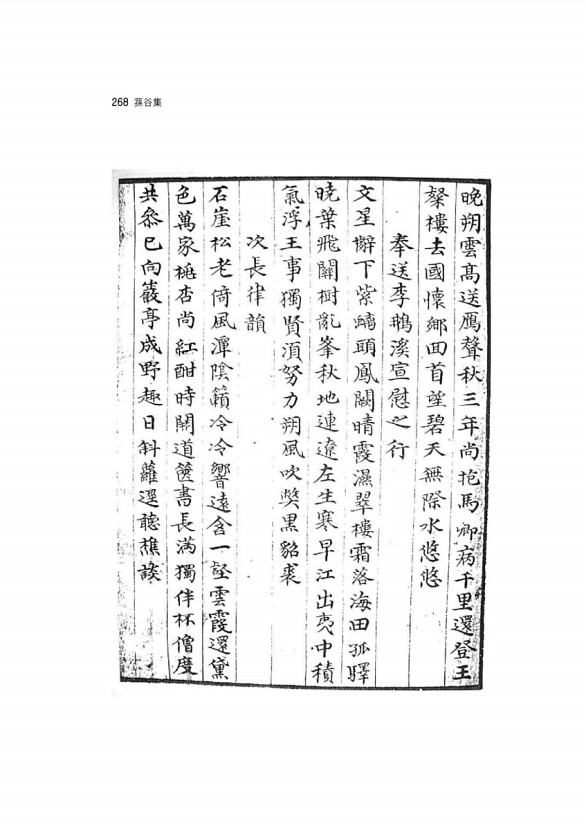 268 蓀谷集
晚朔雲高送鴈聲秋三年尚抱馬卿病千里還登王
粲樓去國懷鄉回首望碧天無際水悠悠
奉送李鵝溪宣慰之行
文星辭下紫螭頭鳳闕晴霞濕翠樓霜落海田孤驛
曉葉飛關樹亂峯秋地連遼左生寒早江出夷中積
氣浮王事獨賢須努力朔風吹獘黑貂裘
次長律韻
石崖松老倚風潭陰籟冷冷響遠含一壑雲霞還黛
色萬家桃杏尚紅酣時開道篋書長滿獨伴杯僧度
共參已向亭成野趣日斜蘿逕聽樵談